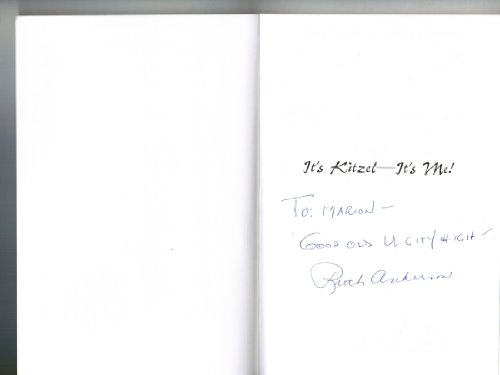 It's Kitzel—It's Me!
To: MARION —
GOOD OLD U. CITY HIGH —
Ruth Anderson